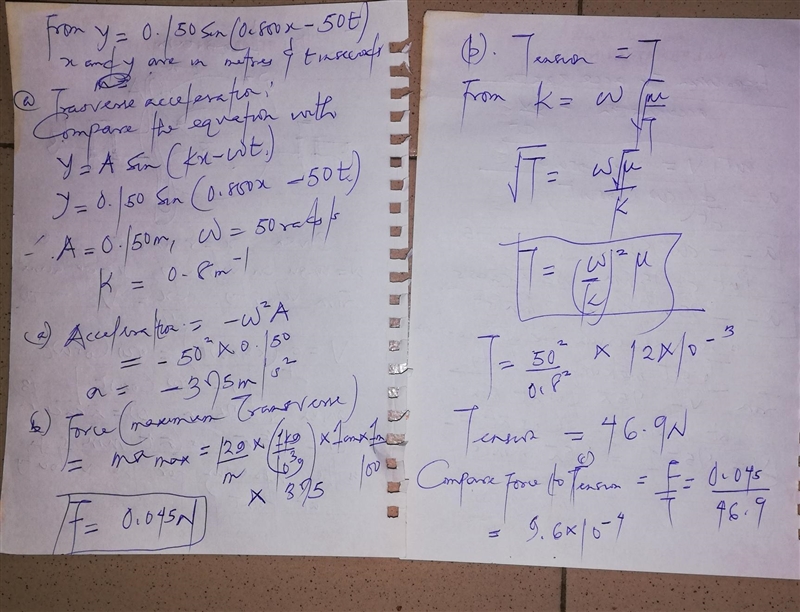 From y = 0.150 Sin(0.800x - 50t)
x and y are in metres & t in seconds
(a) Trasverse acceleration;
Compare the equation with
y = A Sin(Kx - ωt)
y = 0.150 Sin(0.800x - 50t)
∴ A = 0.150m, ω = 50rads/s
K = 0.8m⁻¹
(a) Acceleration = -ω²A
= -50² × 0.150
a = -375m/s²
b) Force (maximum Transverse)
= ma max = 12g/m × (1kg/10³g) × 1cm × 1m/100
× 375
F = 0.045N
(b). Tension = T
From K = ω √μ/√T
√T = ω√μ/K
T = (ω/k)² μ
T = 50²/0.8² × 12×10⁻³
Tension = 46.9N
(c)
Compare Force to Tension = F/T = 0.045/46.9
= 9.6×10⁻⁴